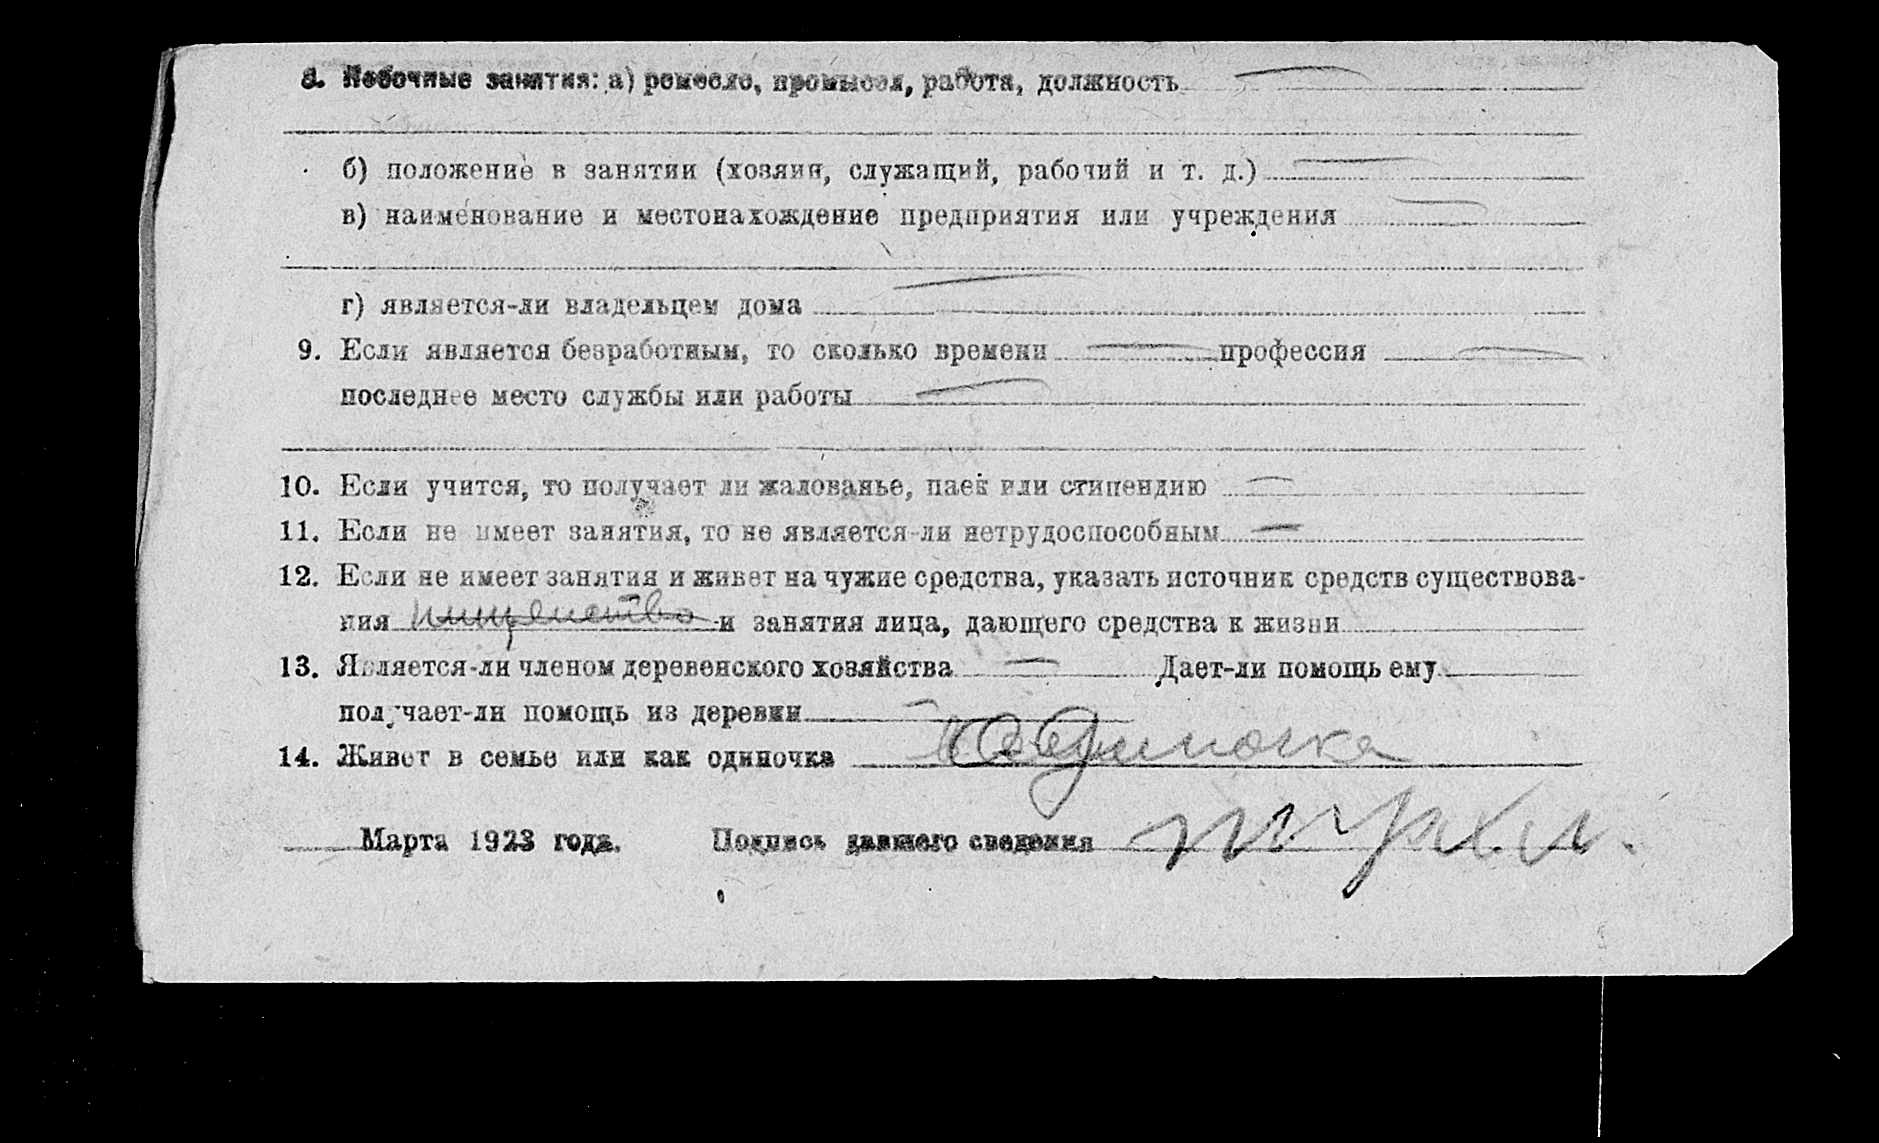 8. Побочные занятия: а) ремесло, промысел, работа, должность —
б) положение в занятии (хозяин, служащий, рабочий и т. д.) —
в) наименование и местонахождение предприятия или учреждения —
г) является-ли владельцем дома —
9. Если является безработным, то сколько времени — профессия —
последнее место службы или работы —
10. Если учится, то получает ли жалованье, паек или стипендию —
11. Если не имеет занятия, то не является-ли нетрудоспособным —
12. Если не имеет занятия и живет на чужие средства, указать источник средств существова-
ния нищенство и занятия лица, дающего средства к жизни
13. Является-ли членом деревенского хозяйства — Дает-ли помощь ему
получает-ли помощь из деревни —
14. Живет в семье или как одиночка одиночка
Марта 1923 года. Подпись давшего сведения